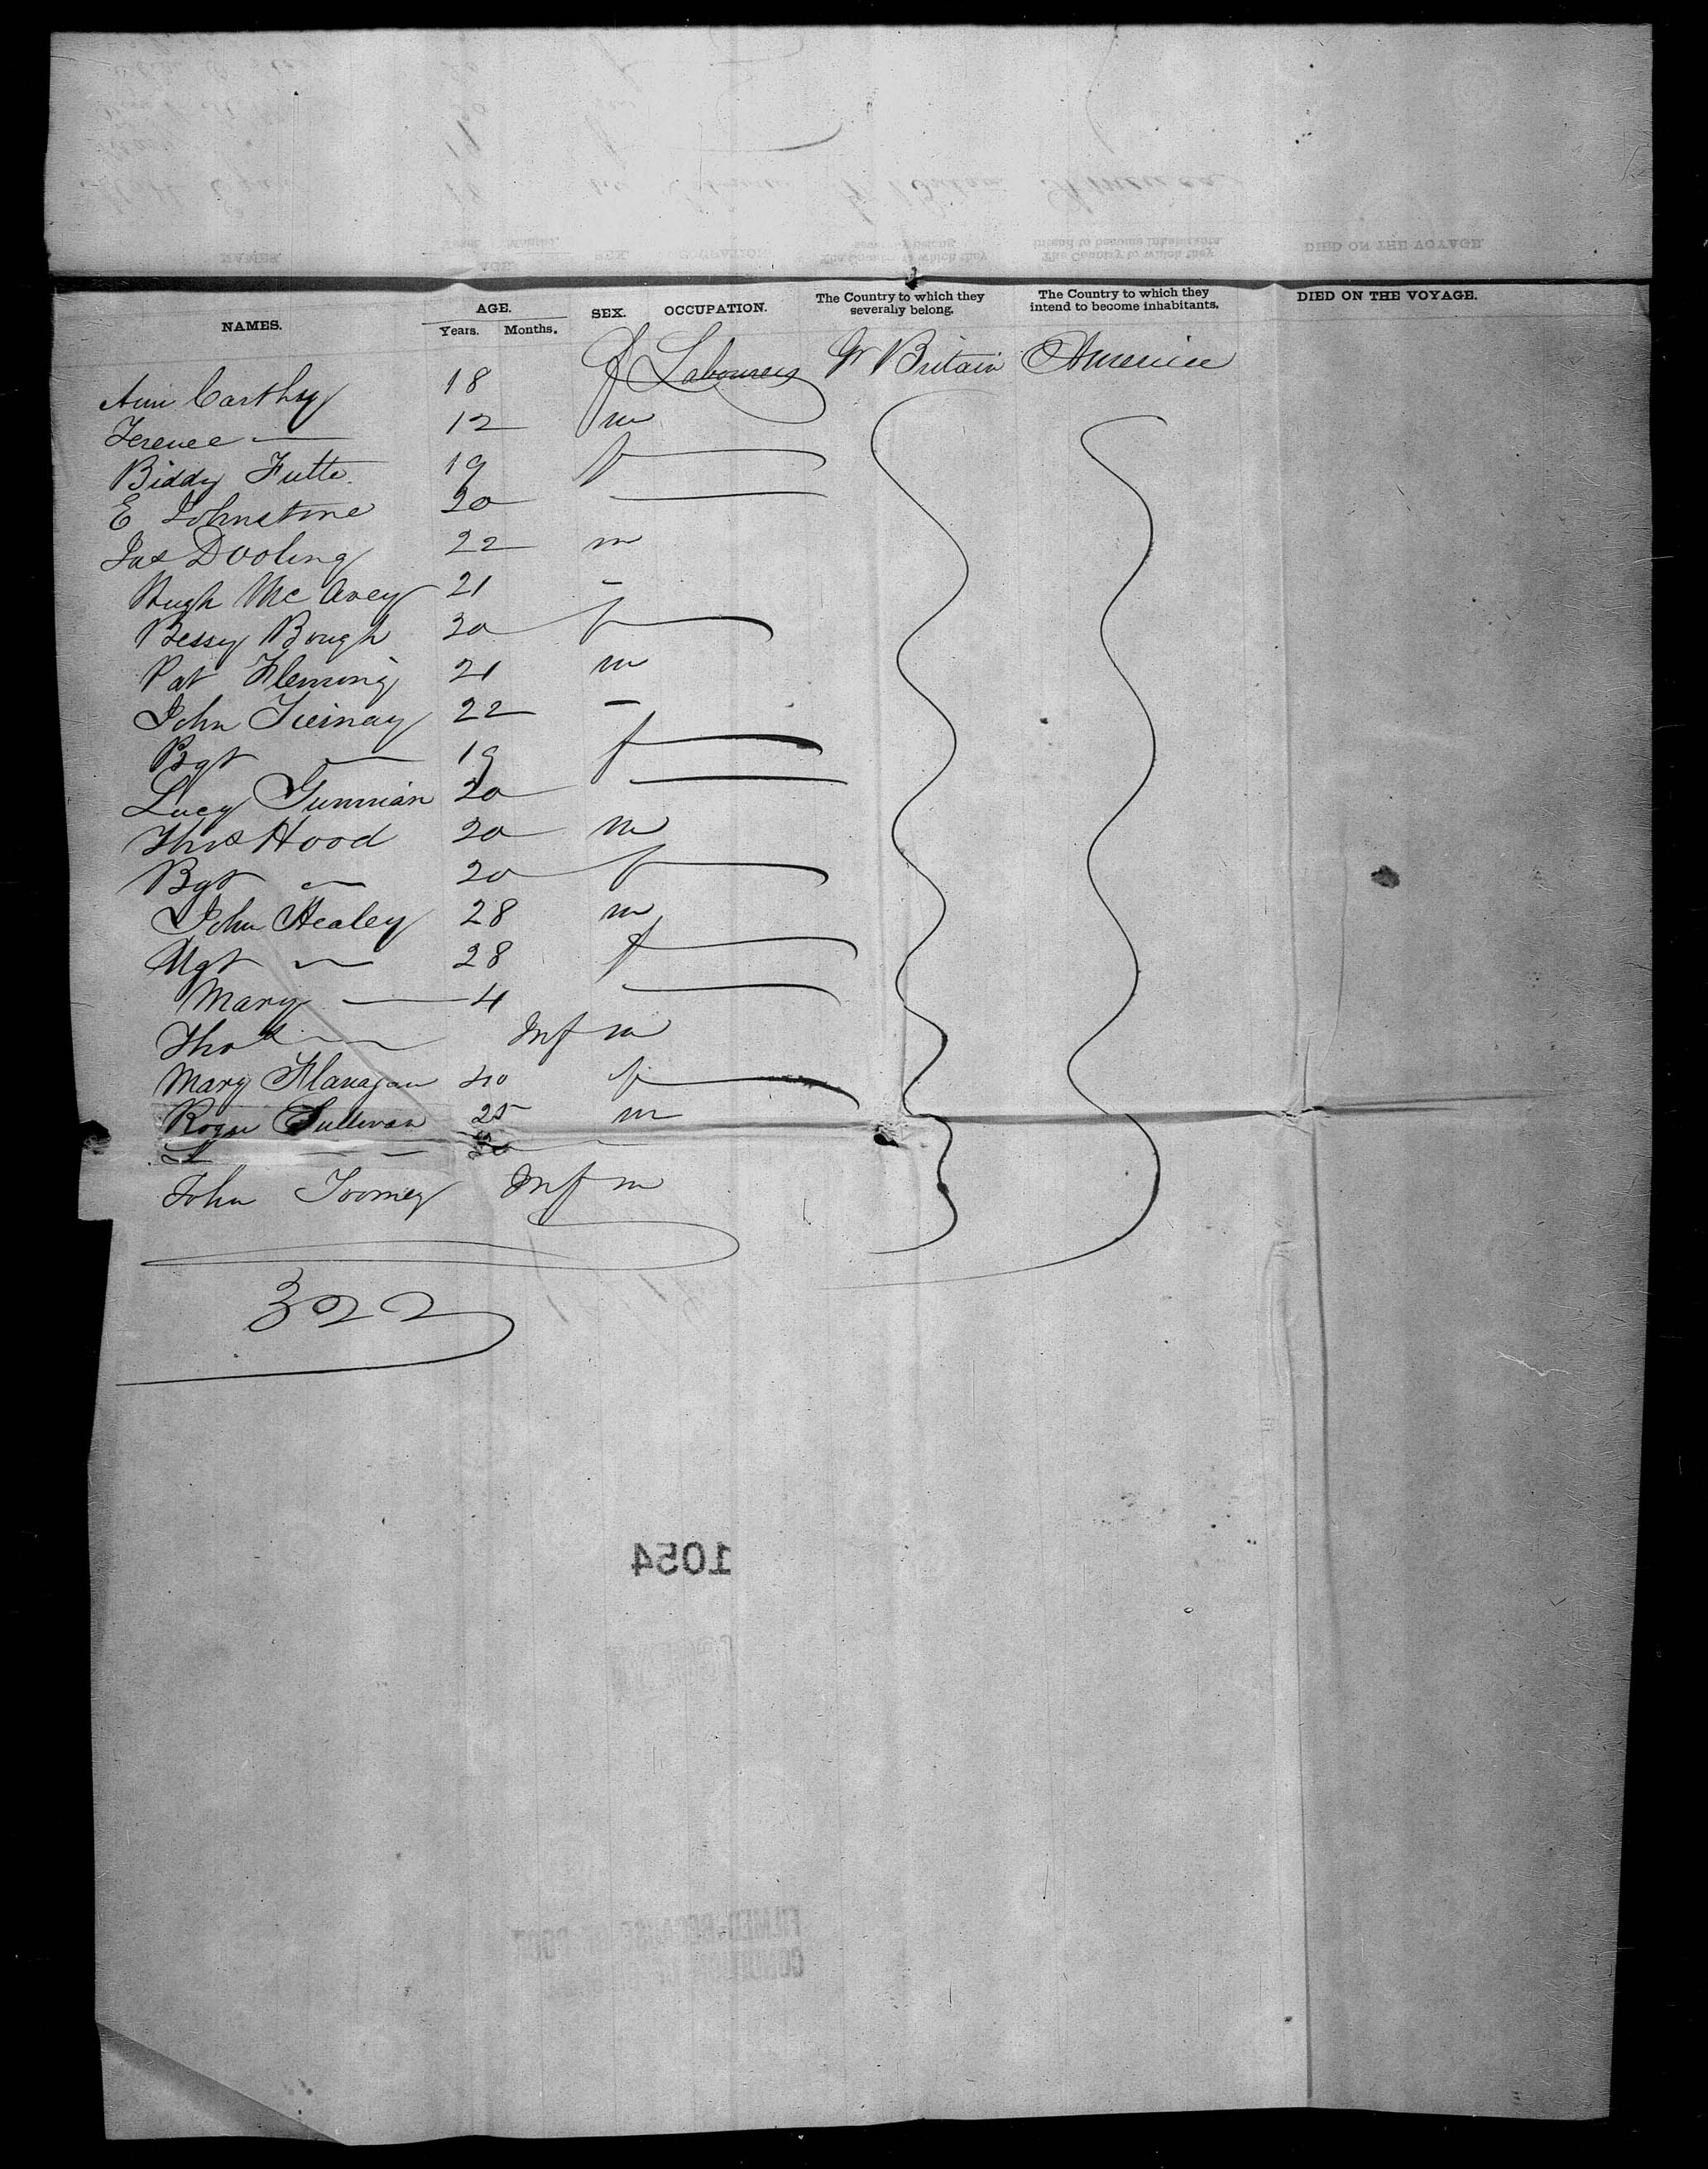 NAMES. AGE. Years. Months. SEX. OCCUPATION. The Country to which they severally belong. The Country to which they intend to become inhabitants. DIED ON THE VOYAGE.
Ann Carthy 18 f Labourers Gr Britain America
Terence — 12 m
Biddy Futte 19 f
E Johnstone 20
Jas Dooling 22 m
Hugh McAvey 21 -
Bessy Bough 30 f
Pat Fleming 21 m
John Tiernay 22 -
Bgt — 19 f
Lucy 20
Thos Hood 20 m
Bgt — 20 f
John Healey 28 m
Mgt — 28 f
Mary — 4
Thos — Inf m
Mary Flanagan 40 f
Roger Sullivan 25 m
John Toomey Inf m
322
1054
FILMED BECAUSE OF POOR
CONDITION OF